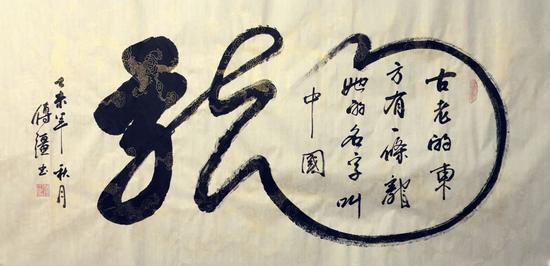 古老的東
方有一條龍
她的名字叫
中國
龍
乙未年秋月
傅書